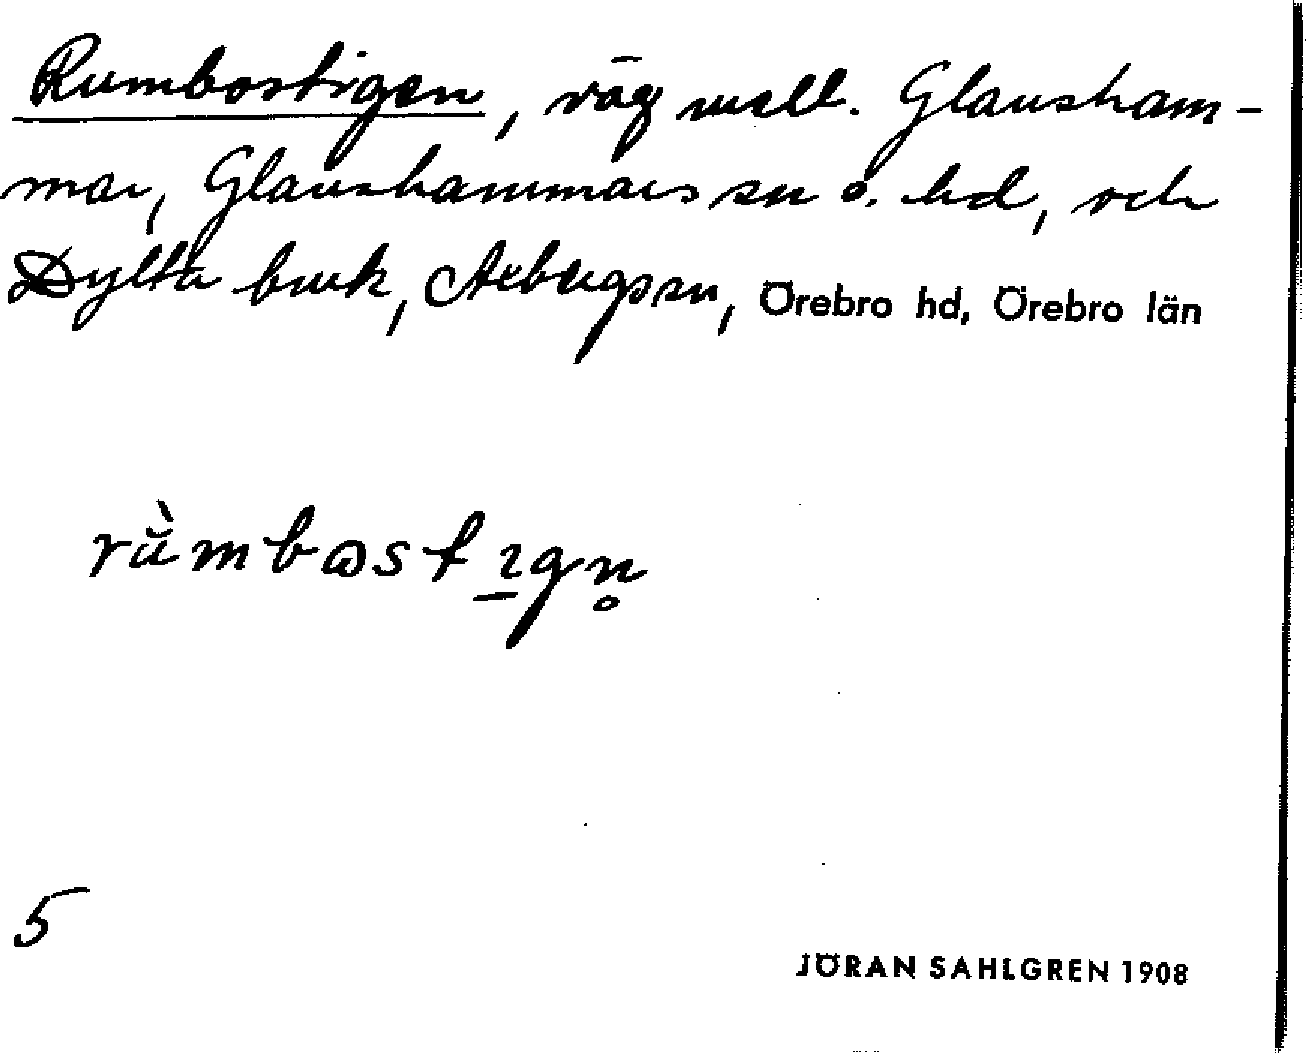 Rumbostigen, väg mell. Glansham-
mar, Glanshammars sn o. hd, och
Dylta bruk, Axbergs sn, Örebro hd, Örebro län
rŭ̀mbɷstı̲gn̥
5
JÖRAN SAHLGREN 1908